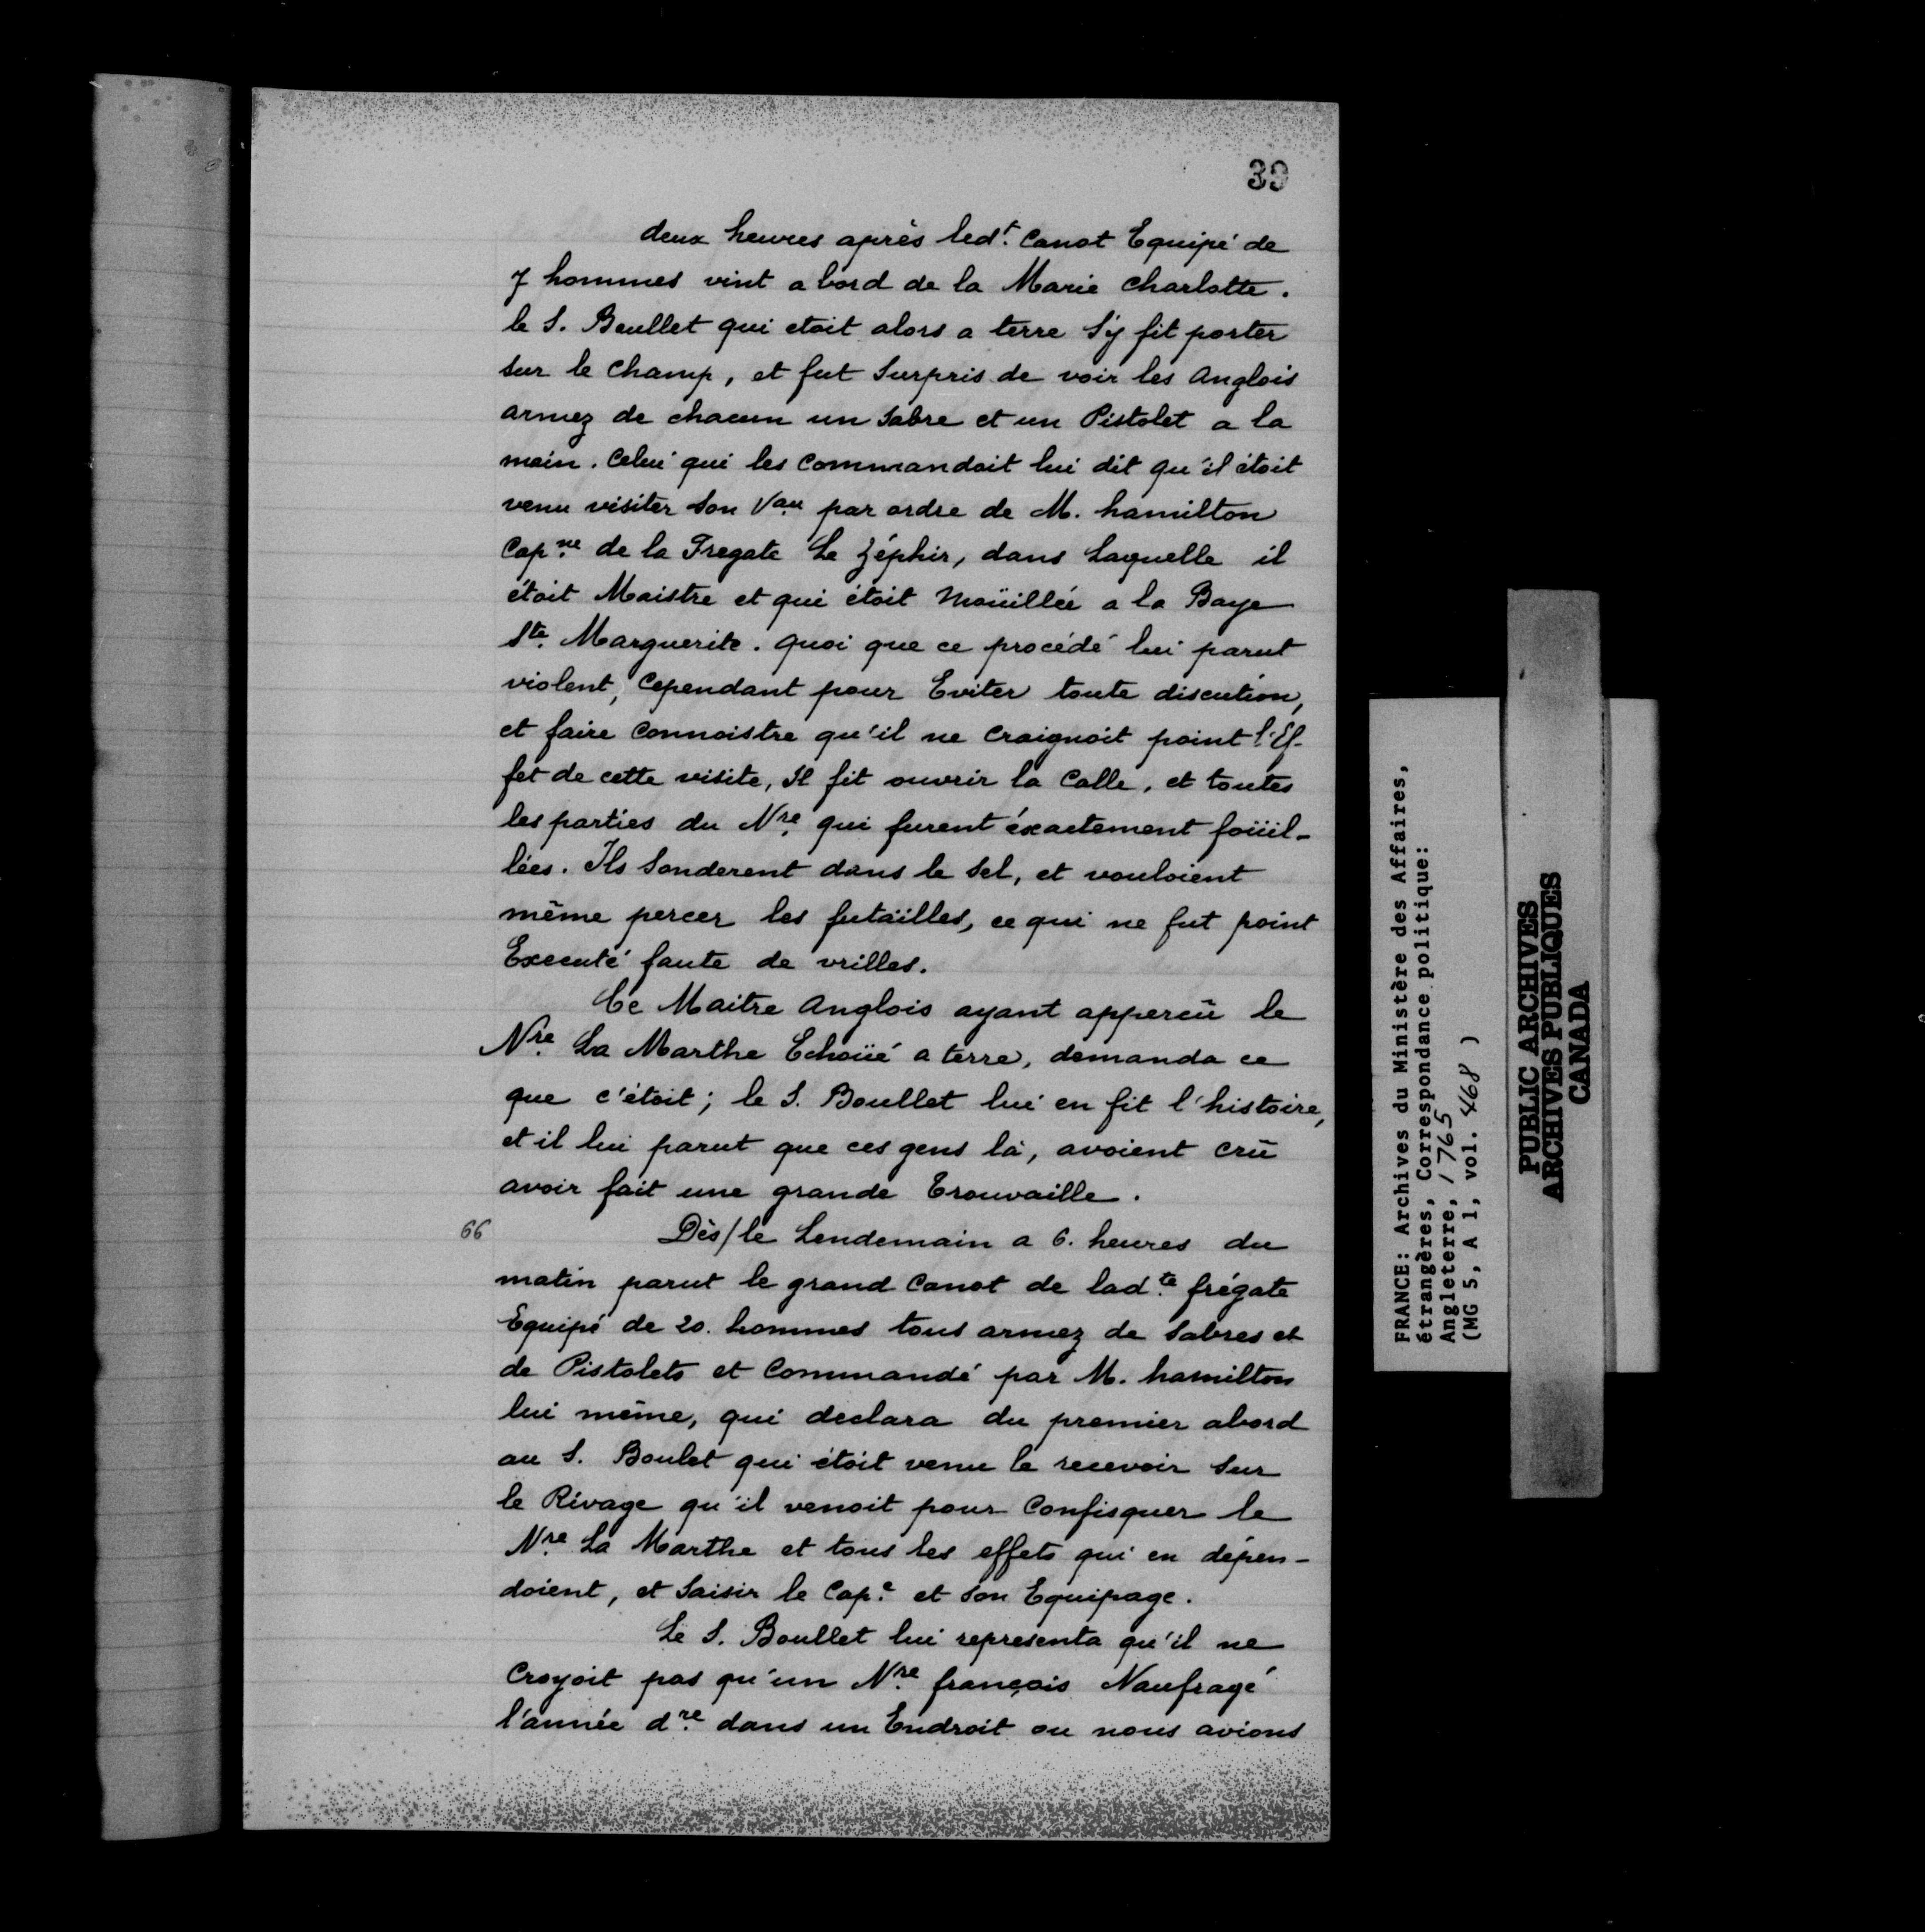 39
deux heures après led.t Canot Equipé de
7 hommes vint a bord de la Marie Charlotte.
le S. Boullet qui etoit alors a terre S'y fit porter
sur le Champ, et fut Surpris de voir les Anglois
armez de chacun un Sabre et un Pistolet a la
main. Celui qui les Commandoit lui dit qu'il étoit
venu visiter Son V.au par ordre de M. hamilton
Cap.ne de la Fregate Le Zéphir, dans Laquelle il
étoit Maistre et qui étoit Moüillée a la Baye
S.te Marguerite. quoi que ce procédé lui parut
violent, Cependant pour Eviter toute discution,
et faire Connoistre qu'il ne Craignoit point l'Ef-
fet de cette visite, Il fit ouvrir la Calle, et toutes
les parties du N.re qui furent éxactement foüil-
lées. Ils Sonderent dans le Sel, et vouloient
même percer les futailles, ce qui ne fut point
Executé faute de vrilles.
Ce Maitre Anglois ayant apperçû le
N.re La Marthe Echoüé a terre, demanda ce
que c'étoit; le S. Boullet lui en fit l'histoire,
et il lui parut que ces gens là, avoient crû
avoir fait une grande Trouvaille.
66 Dès/le Lendemain a 6. heures du
matin parut le grand Canot de lad.te frégate
Equipé de 20. hommes tous armez de Sabres et
de Pistolets et Commandé par M. hamilton
lui même, qui declara du premier abord
au S. Boulet qui étoit venu le recevoir Sur
le Rivage qu'il venoit pour Confisquer le
N.re La Marthe et tous les effets qui en dépen-
doient, et Saisir le Cap.e et Son Equipage.
Le S. Boullet lui representa qu'il ne
Croyoit pas qu'un N.re françois Naufragé
l'année d.re dans un Endroit ou nous avions
FRANCE: Archives du Ministère des Affaires,
étrangères, Correspondance politique:
Angleterre, 1765
(MG 5, A 1, vol. 468 )
PUBLIC ARCHIVES
ARCHIVES PUBLIQUES
CANADA